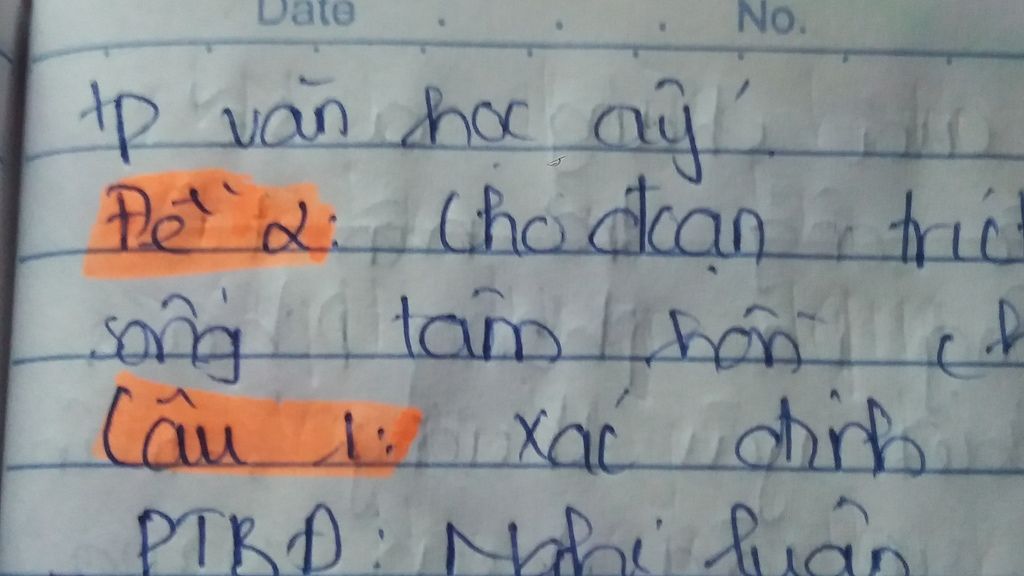 Date . . . No.
tp văn học ấy
Đề 2: Cho đoạn tríc
sống tâm hồn
Câu 1: xác định
PTBĐ: Nghị luận